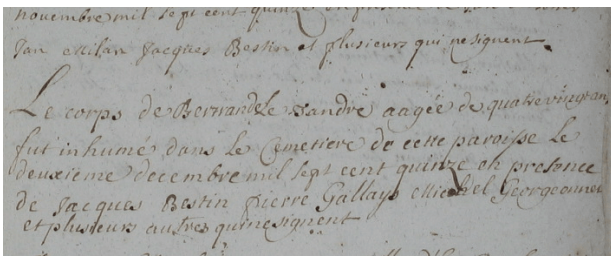 novembre mil sept cent quinze en presence de
Jan Milan Jacques Bestin et plusieurs qui ne signent
Le corps de Bertrande Le Vandre aagée de quatre vingt an
fut inhumé dans le Cemetiere de cette paroisse le
deuxieme decembre mil sept cent quinze en presence
de Jacques Bestin pierre Gallays Michel Georgeonnet
et plusieurs autres qui ne signent